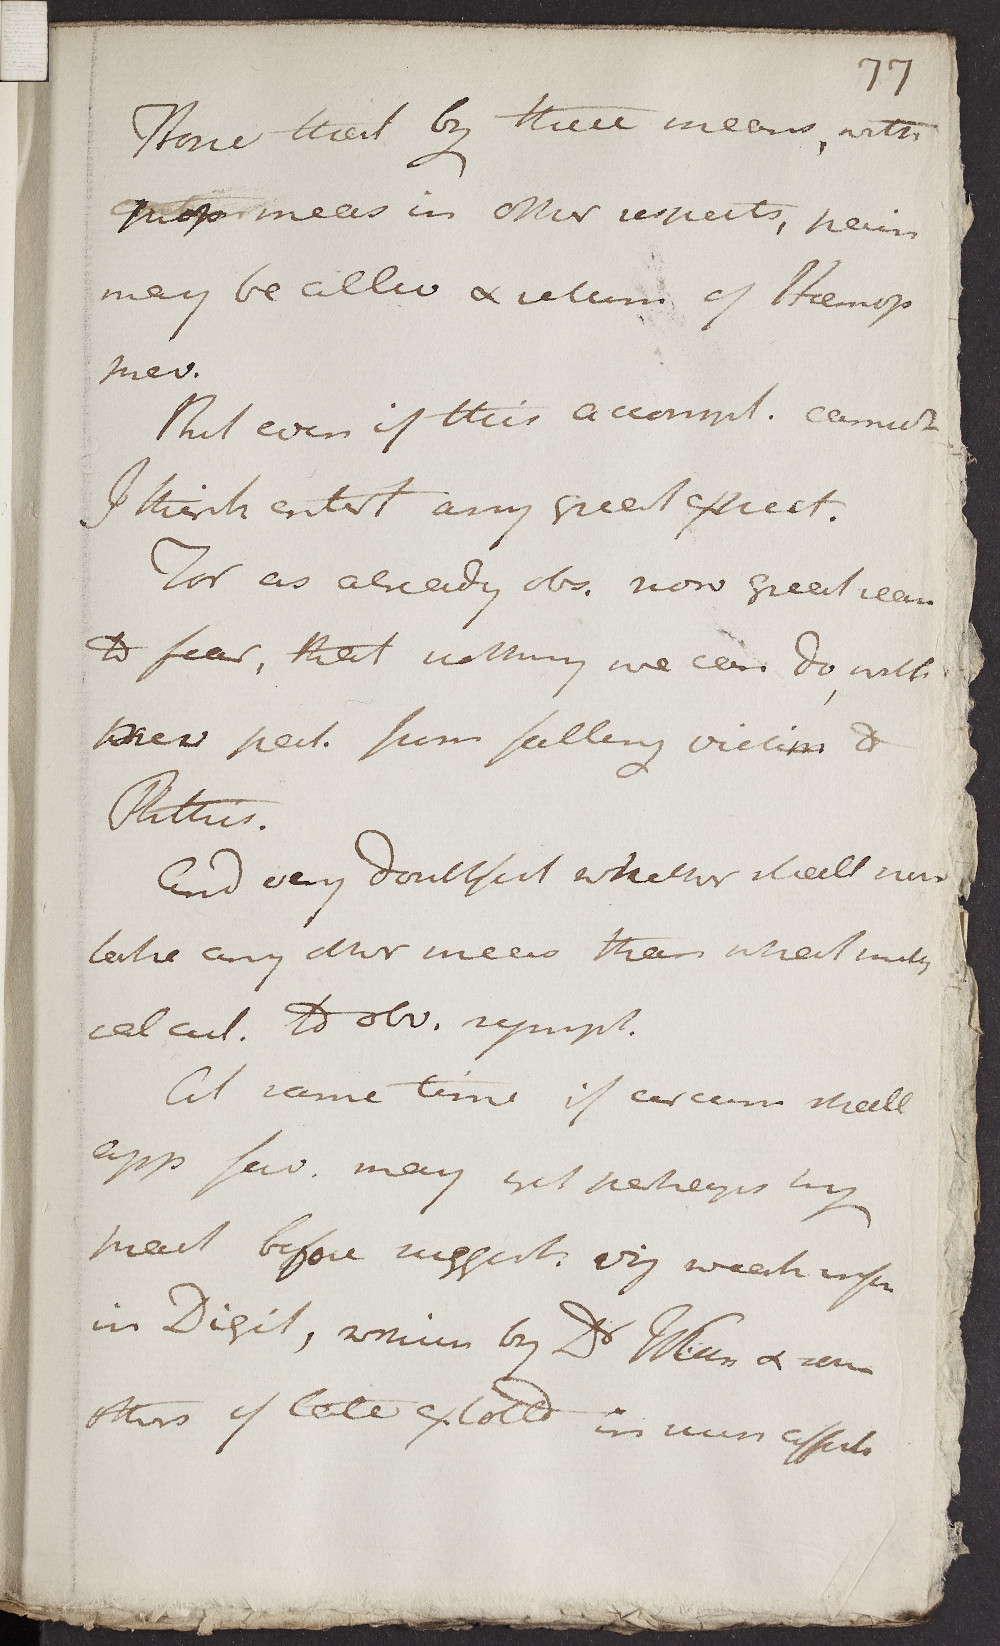 77
Hope that by these means, with
proper meas in other respects, pain
may be allev & return of Hæmop
prev.
But even if this accompl. cannot
I think entert any great expect.
For as already obs. now great reason
to fear, that nothing we can do, will
prev pat. from falling victim to
Phthis.
And very doubtful whether shall now
take any other meas than what merely
calcul. to obv. sympt.
At same time if circum shall
app fav. may yet perhaps try
pract before suggest. viz weak infus
in Digit, which by Dr & some
others of late extolld in